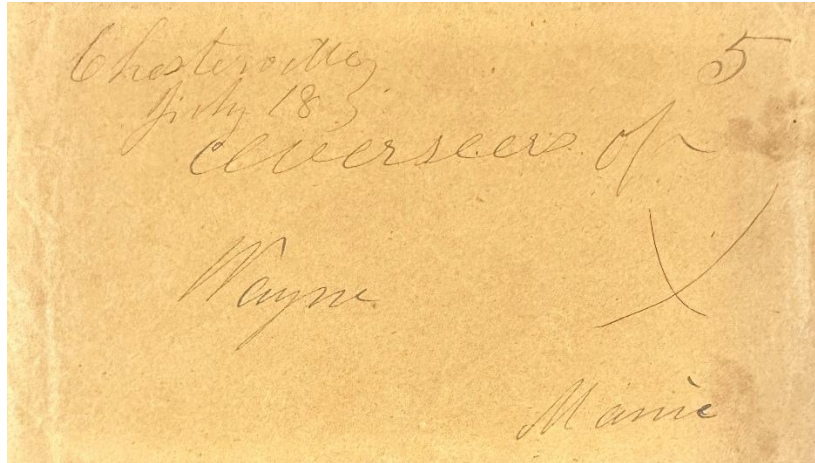 Chesterville 5
July 18
Overseers of
Wayne
Maine